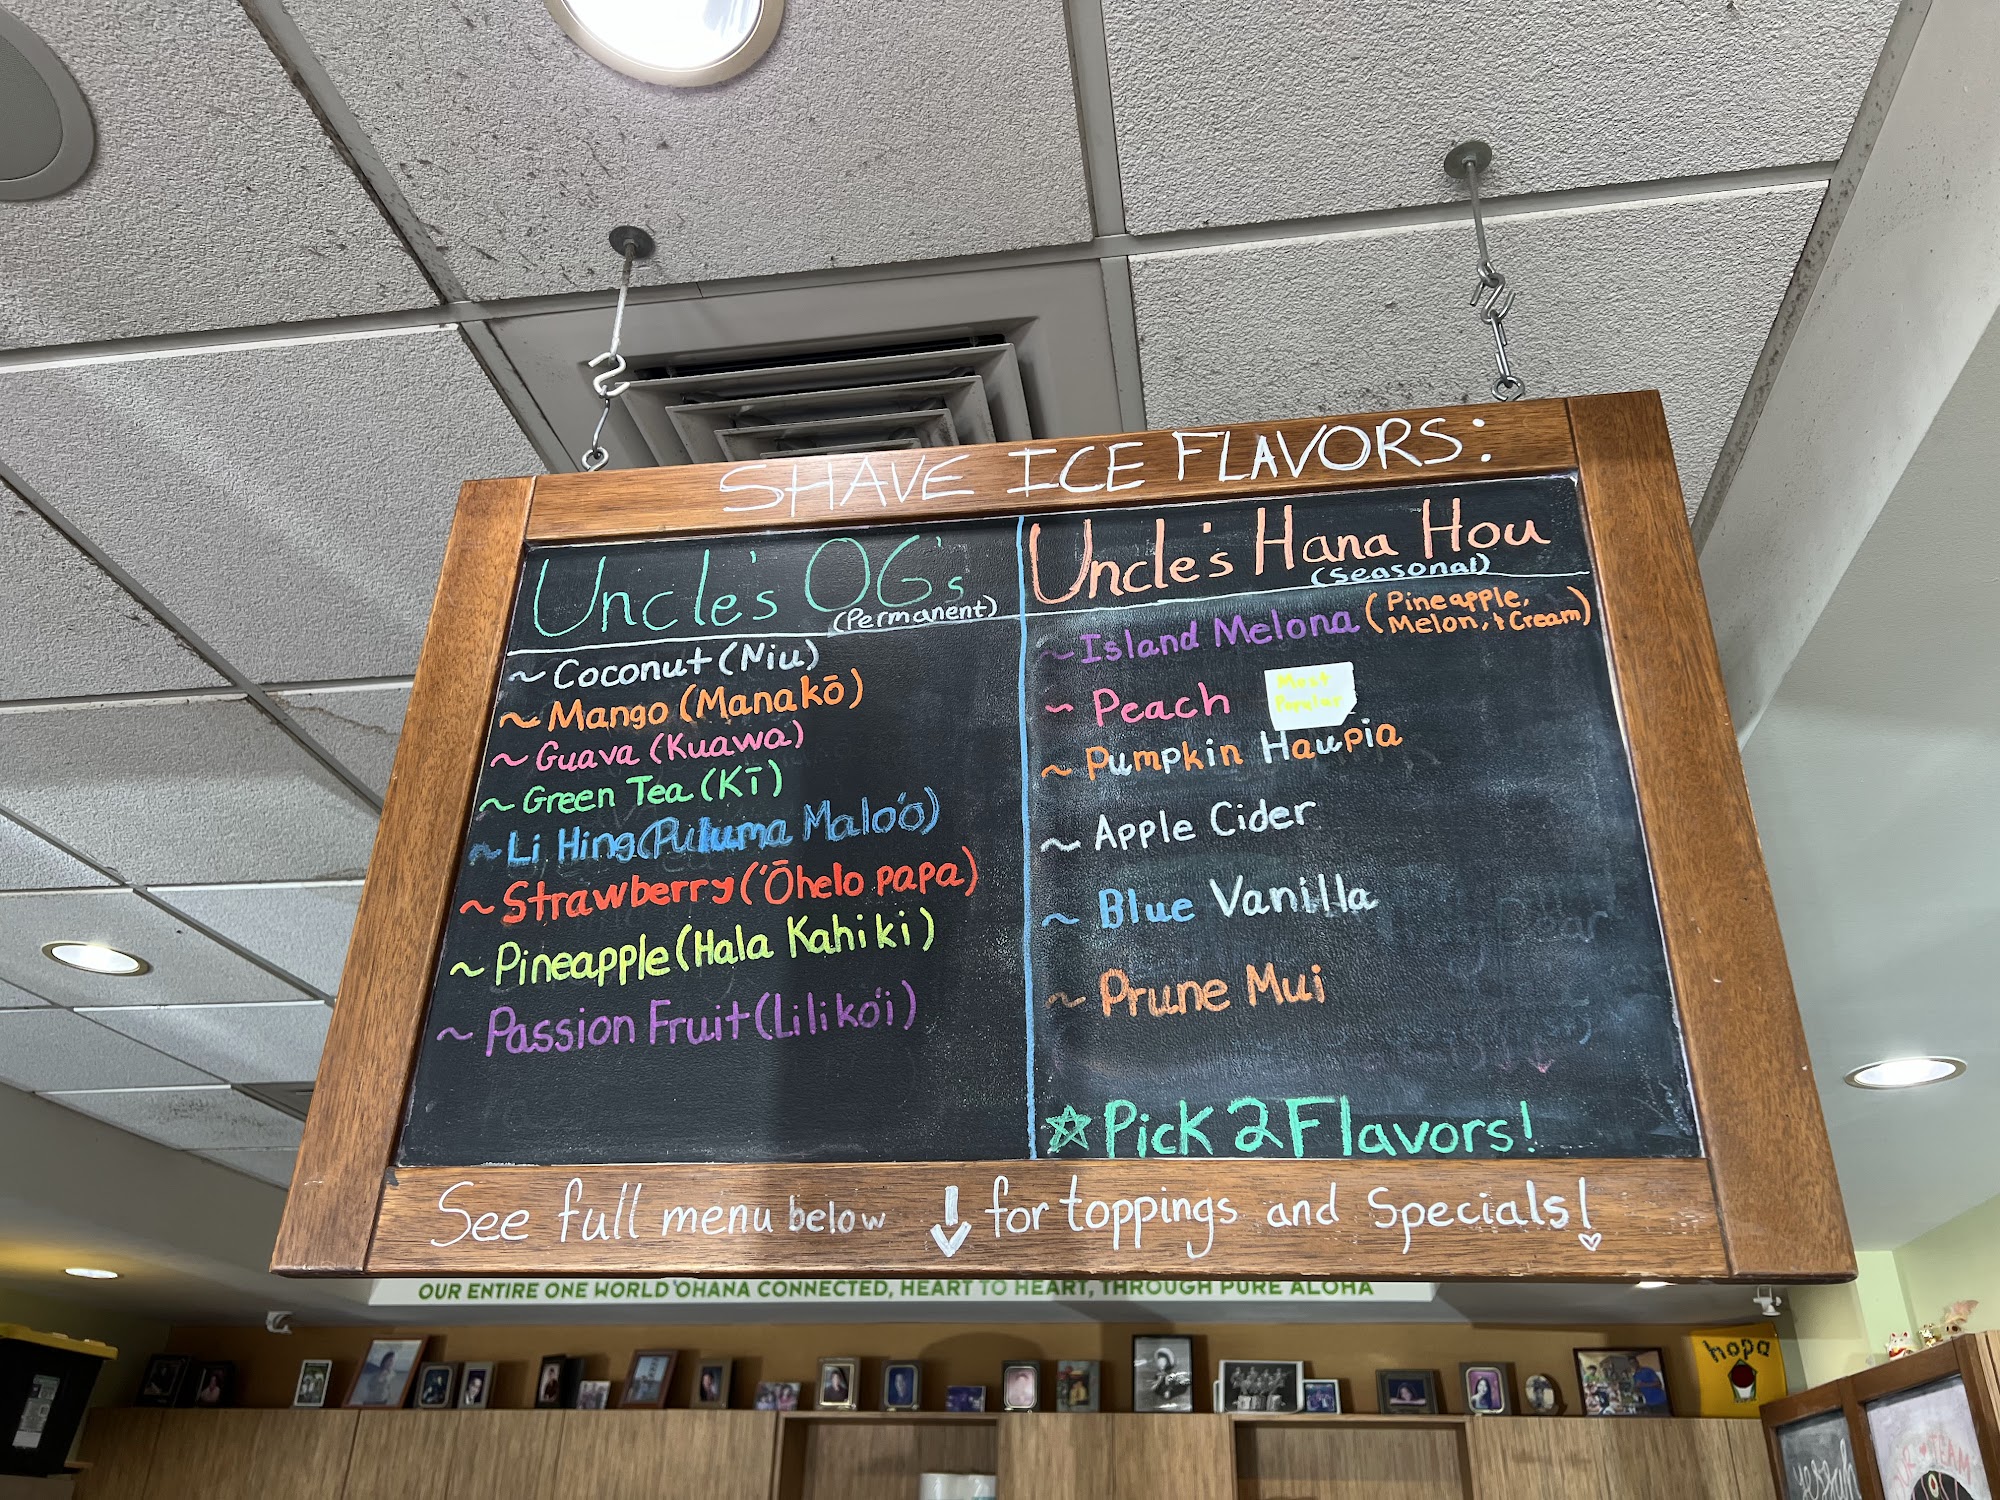 SHAVE ICE FLAVORS:
Uncle's OG's
(Permanent)
~ Coconut (Niu)
~ Mango (Manakō)
~ Guava (Kuawa)
~ Green Tea (Kī)
~ Li Hing (Puluma Malo'o)
~ Strawberry ('Ōhelo papa)
~ Pineapple (Hala Kahiki)
~ Passion Fruit (Liliko'i)
Uncle's Hana Hou
(Seasonal)
~ Island Melona (Pineapple, Melon, + Cream)
~ Peach
Most
Popular
~ Pumpkin Haupia
~ Apple Cider
~ Blue Vanilla
~ Prune Mui
☆ Pick 2 Flavors!
See full menu below ↓ for toppings and Specials!
OUR ENTIRE ONE WORLD 'OHANA CONNECTED, HEART TO HEART, THROUGH PURE ALOHA
hopa
TEAM